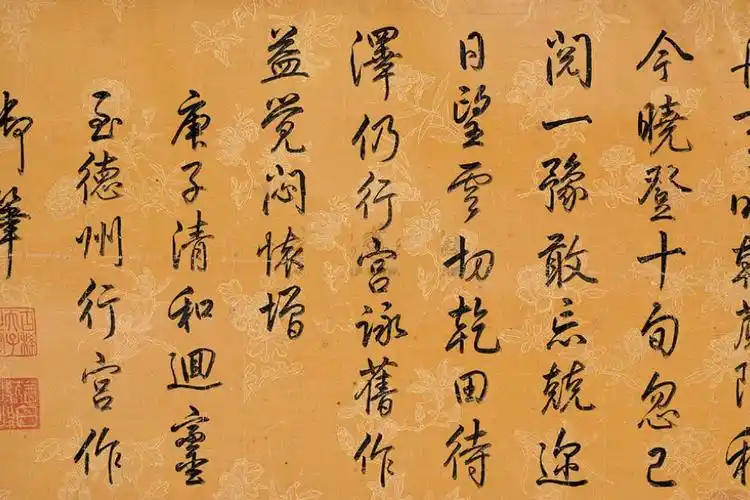 今曉登十旬忽已
閱一豫敢忘兢迩
日望雲切乾田待
澤仍行宮詠舊作
益覺悶懷增
庚子清和迴鑾
至德州行宮作
御筆